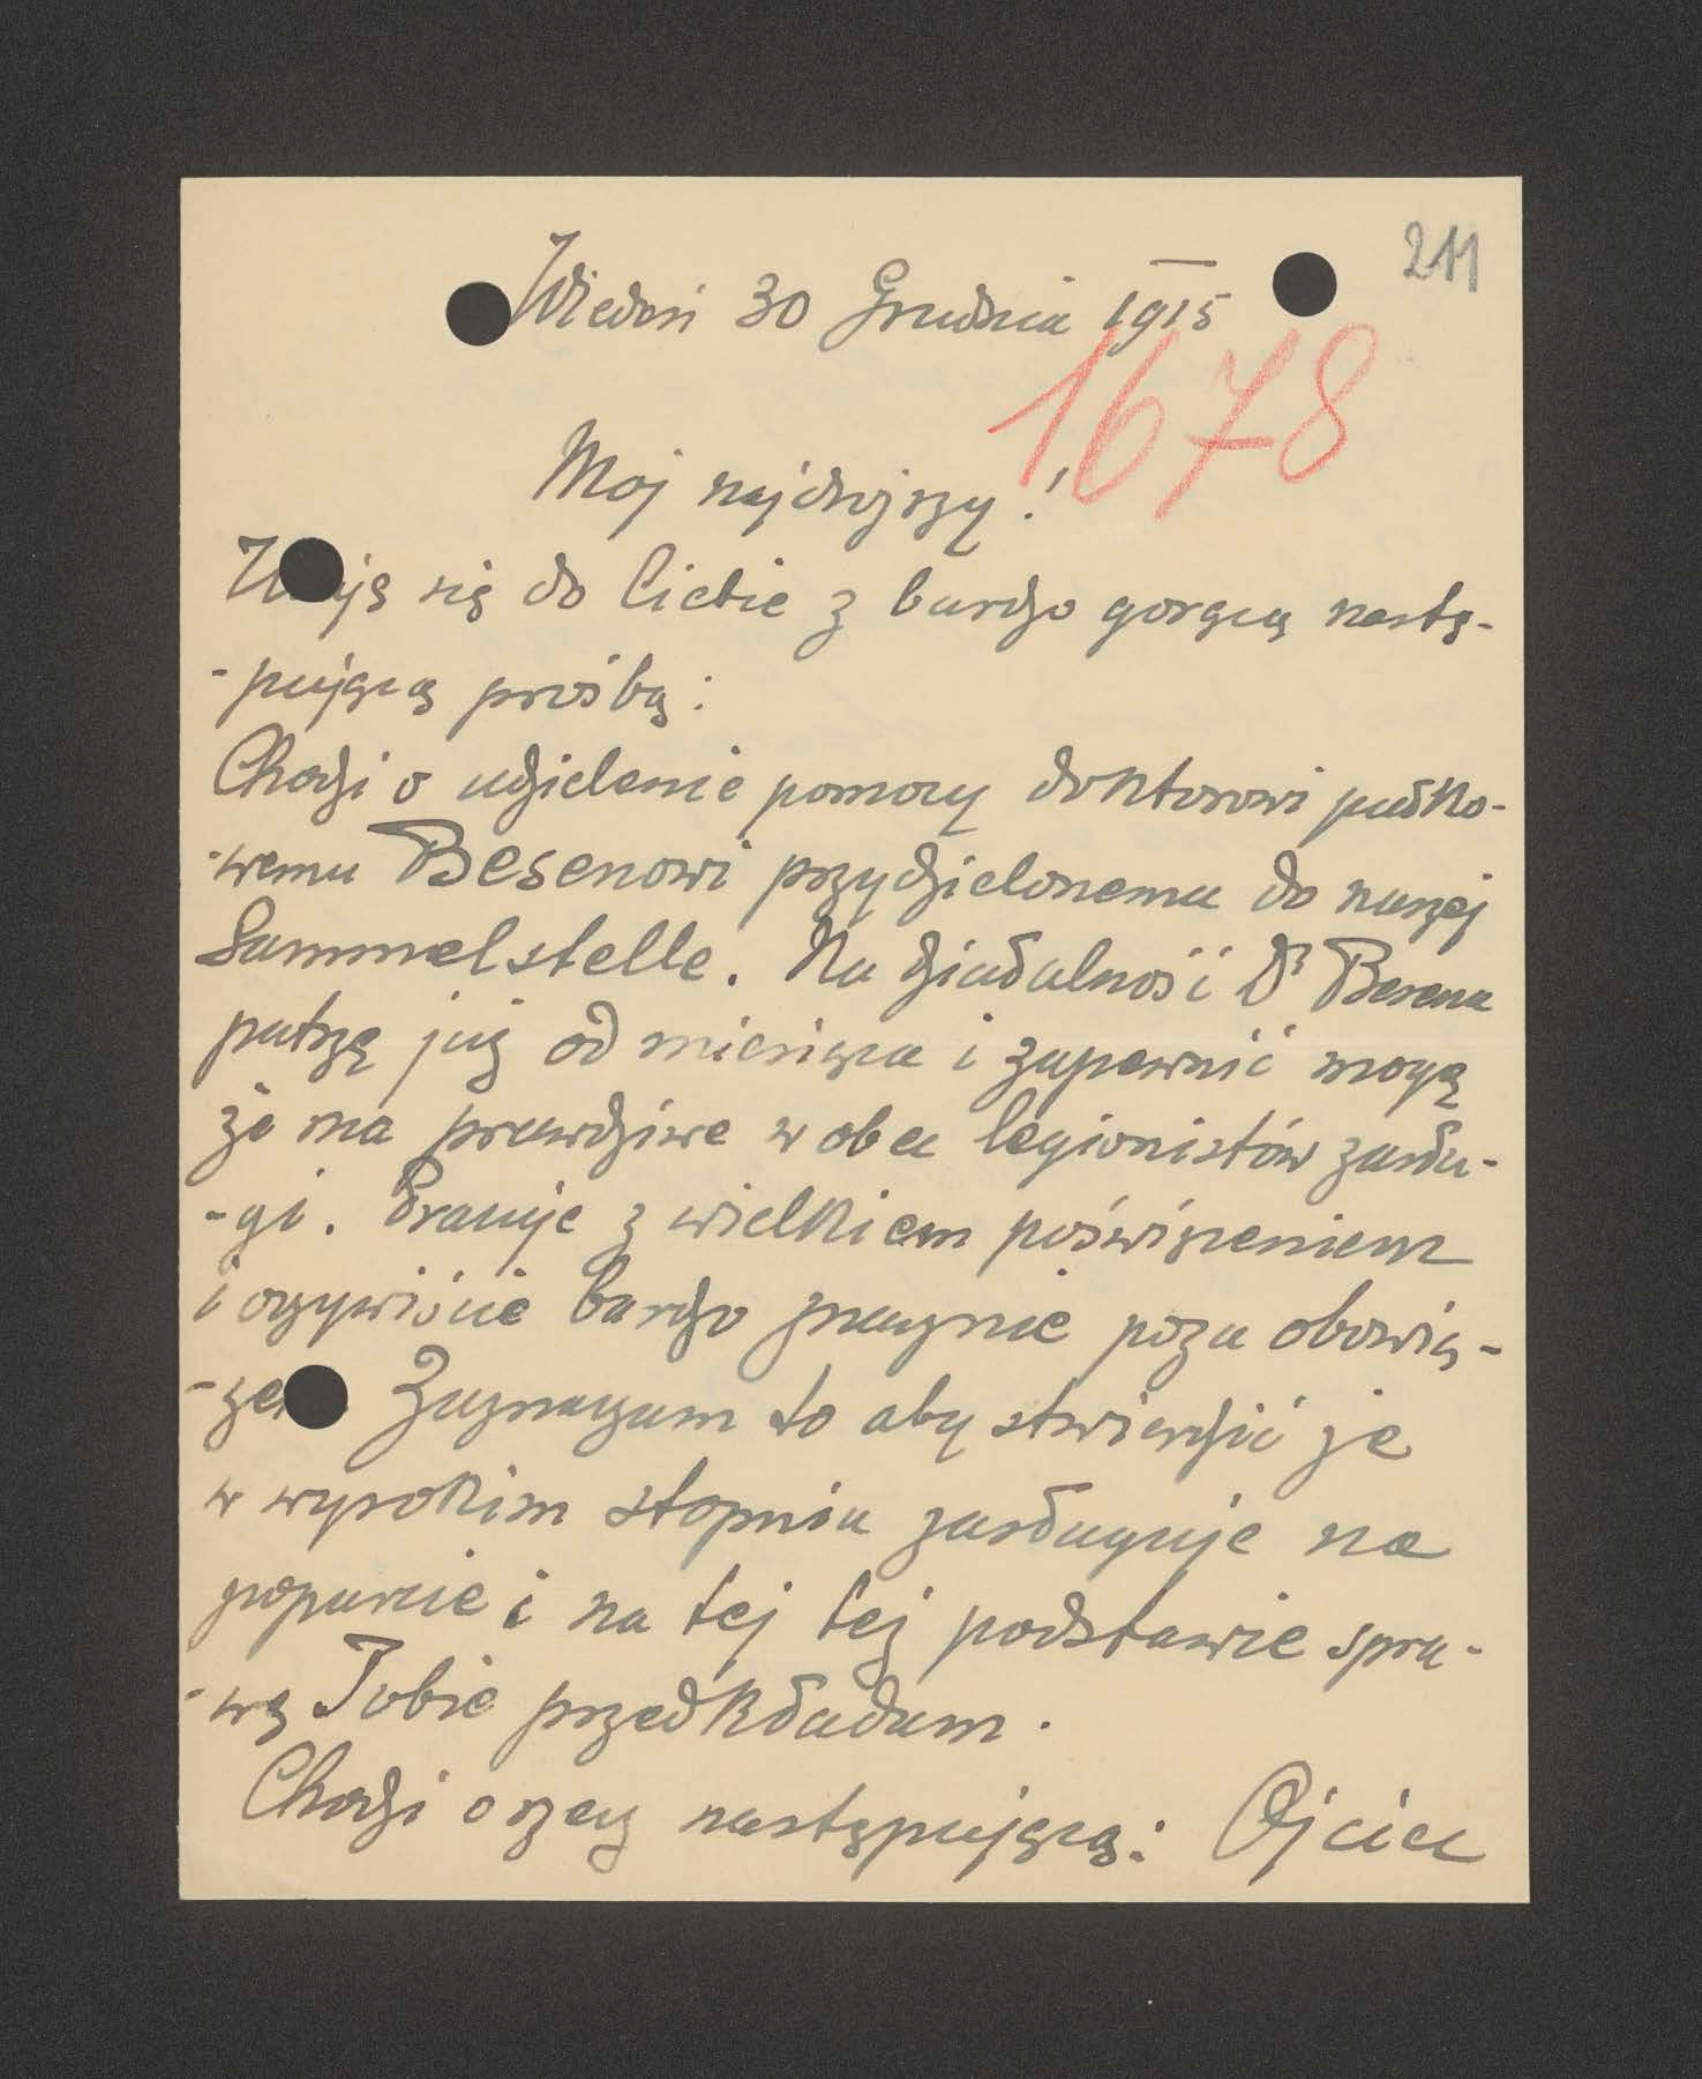 211
Wiedeń 30 Grudnia 1915
1678
Moj najdroższy!
się do Ciebie z bardzo gorącą nastę-
-pującą prośbą:
Chodzi o udzielenie pomocy doktorowi pułko-
-wemu Besenowi przydzielonemu do naszej
Sammelstelle. Na działalność Dr Besena
patrzę już od miesiąca i zapewnić mogę
że ma prawdziwe wobec legionistów zasłu-
-gi. Pracuje z wielkiem poświęceniem
i oczywiście bardzo znacznie poza obowią-
Zaznaczam to aby stwierdzić że
w wysokim stopniu zasługuje na
poparcie i na tej też podstawie spra-
-wę Tobie przedkładam.
Chodzi o rzecz następującą: Ojciec